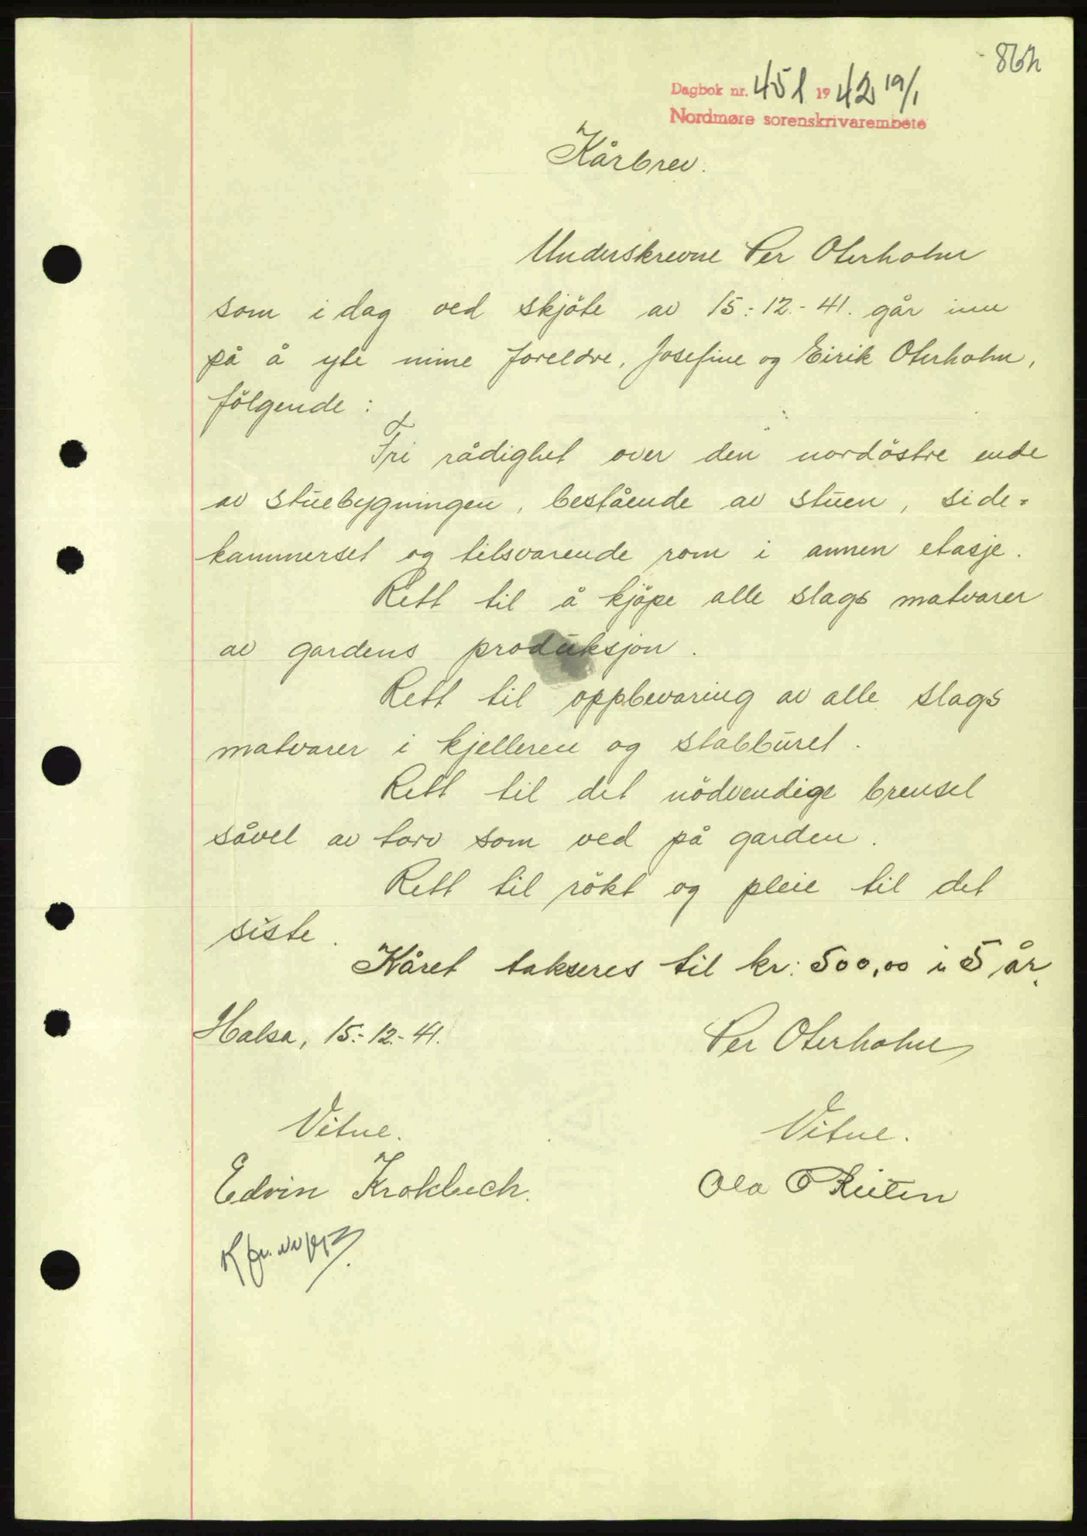 Dagbok nr. 451 1942 19/1
Nordmøre sorenskrivarembete
Kårbrev.
Underskrevne Per Oterholm
som i dag ved skjöte av 15.-12.-41. går inn
på å yte mine foreldre, Josefine og Eirik Oterholm,
fölgende:
Fri rådighet over den nordöstre ende
av stuebygningen, bestående av stuen, side-
kammerset og tilsvarende rom i annen etasje.
Rett til å kjöpe alle slags matvarer
av gardens produksjon.
Rett til oppbevaring av alle slags
matvarer i kjelleren og stabburet.
Rett til det nödvendige brensel
såvel av torv som ved på garden.
Rett til rökt og pleie til det
siste.
Kåret takseres til kr: 500,00 i 5 år.
Halsa, 15.-12.-41.
Per Oterholm
Vitne.
Vitne.
Edvin
Ola O